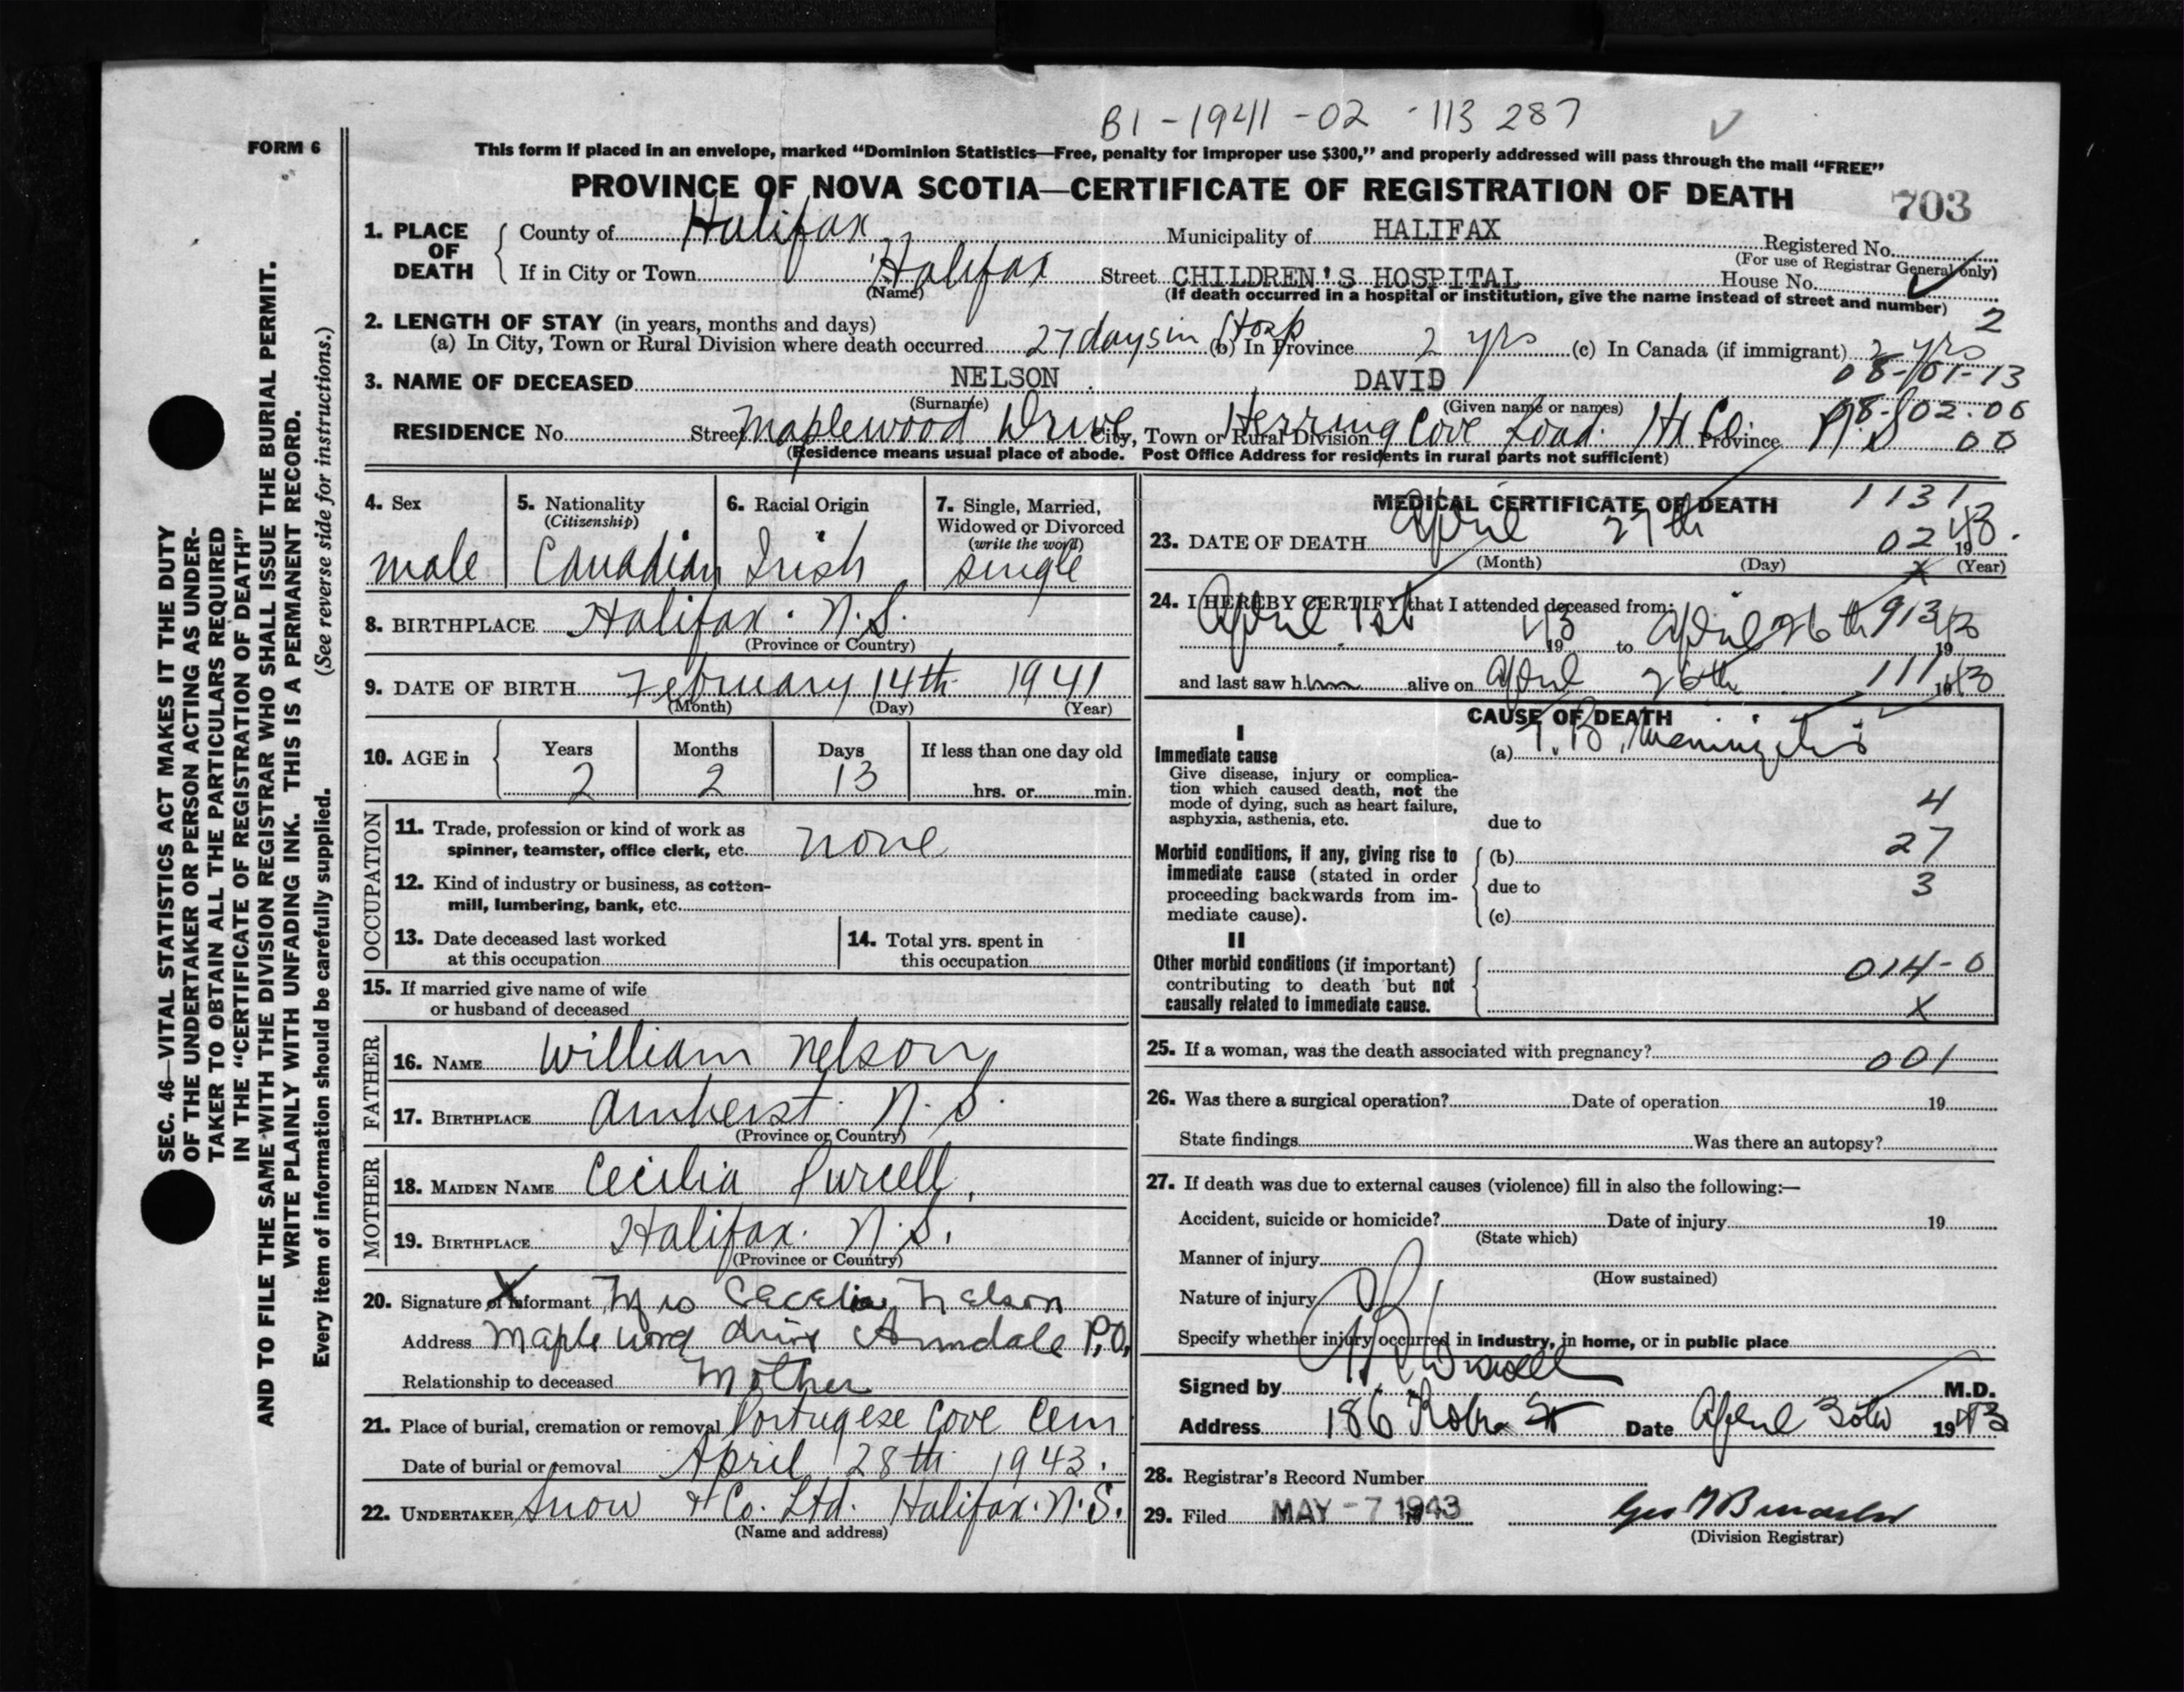 B1-1941-02-113 287
FORM 6
This form if placed in an envelope, marked “Dominion Statistics—Free, penalty for improper use $300,” and properly addressed will pass through the mail “FREE”
PROVINCE OF NOVA SCOTIA—CERTIFICATE OF REGISTRATION OF DEATH 703
1. PLACE OF DEATH County of Halifax Municipality of HALIFAX Registered No.
(For use of Registrar General only)
If in City or Town Halifax Street CHILDREN'S HOSPITAL House No.
(Name) (If death occurred in a hospital or institution, give the name instead of street and number)
2
2. LENGTH OF STAY (in years, months and days)
(a) In City, Town or Rural Division where death occurred 27 days in Hosp (b) In Province 2 yrs (c) In Canada (if immigrant) 2 yrs
08-01-13
3. NAME OF DECEASED NELSON DAVID
(Surname) (Given name or names)
08-02.06
RESIDENCE No. Street Maplewood Drive City, Town or Rural Division Herring Cove Road. Hx Co. Province N.S 00
(Residence means usual place of abode. Post Office Address for residents in rural parts not sufficient)
4. Sex male
5. Nationality (Citizenship) Canadian
6. Racial Origin Irish
7. Single, Married, Widowed or Divorced (write the word) single
8. BIRTHPLACE Halifax. N.S.
(Province or Country)
9. DATE OF BIRTH February 14th 1941
(Month) (Day) (Year)
10. AGE in Years 2 Months 2 Days 13 If less than one day old
hrs. or min.
OCCUPATION
11. Trade, profession or kind of work as
spinner, teamster, office clerk, etc. none
12. Kind of industry or business, as cotton-
mill, lumbering, bank, etc.
13. Date deceased last worked
at this occupation
14. Total yrs. spent in
this occupation
15. If married give name of wife
or husband of deceased
FATHER
16. NAME William Nelson
17. BIRTHPLACE Amherst N.S.
(Province or Country)
MOTHER
18. MAIDEN NAME Cecilia Purcell.
19. BIRTHPLACE Halifax. N.S.
(Province or Country)
20. Signature of Informant X Mrs Cecelia Nelson
Address Maple wood drive Armdale P.O.
Relationship to deceased Mother
21. Place of burial, cremation or removal Portugese Cove Cem
Date of burial or removal April 28th 1943.
22. UNDERTAKER Snow & Co. Ltd. Halifax. N.S.
(Name and address)
MEDICAL CERTIFICATE OF DEATH 1131
23. DATE OF DEATH April 27th 02 1943.
(Month) (Day) (Year)
X
24. I HEREBY CERTIFY that I attended deceased from:
April 1st 1943 to April 26th 913 1943
and last saw him alive on April 26th 111 1943
CAUSE OF DEATH
I
Immediate cause
Give disease, injury or complica-
tion which caused death, not the
mode of dying, such as heart failure,
asphyxia, asthenia, etc.
(a) T.B. Meningitis
4
due to
Morbid conditions, if any, giving rise to
immediate cause (stated in order
proceeding backwards from im-
mediate cause).
(b) 27
due to 3
(c)
II
Other morbid conditions (if important)
contributing to death but not
causally related to immediate cause.
014-0
X
25. If a woman, was the death associated with pregnancy? 001
26. Was there a surgical operation? Date of operation 19
State findings Was there an autopsy?
27. If death was due to external causes (violence) fill in also the following:—
Accident, suicide or homicide? Date of injury 19
(State which)
Manner of injury
(How sustained)
Nature of injury
Specify whether injury occurred in industry, in home, or in public place
Signed by M.D.
Address 186 St Date April 30th 1943
28. Registrar's Record Number
29. Filed MAY -7 1943
(Division Registrar)
SEC. 46—VITAL STATISTICS ACT MAKES IT THE DUTY
OF THE UNDERTAKER OR PERSON ACTING AS UNDER-
TAKER TO OBTAIN ALL THE PARTICULARS REQUIRED
IN THE “CERTIFICATE OF REGISTRATION OF DEATH”
AND TO FILE THE SAME WITH THE DIVISION REGISTRAR WHO SHALL ISSUE THE BURIAL PERMIT.
WRITE PLAINLY WITH UNFADING INK. THIS IS A PERMANENT RECORD.
Every item of information should be carefully supplied. (See reverse side for instructions.)